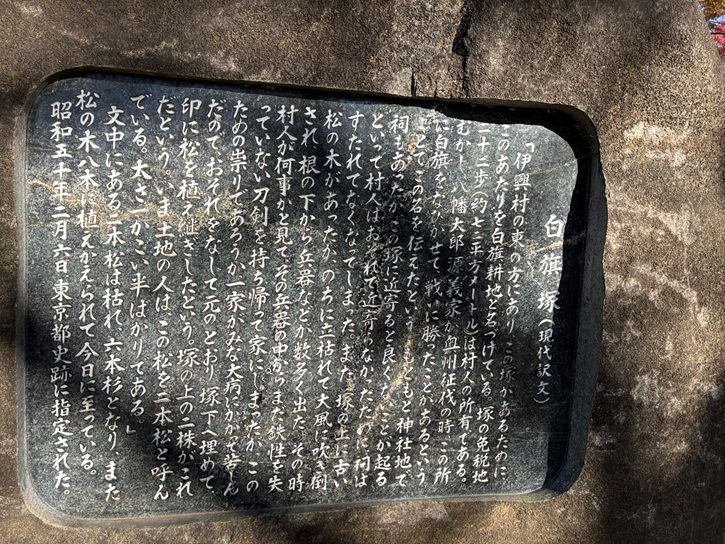 白旗塚(現代訳文)
「伊興村の東の方にあり、この塚があるために
このあたりを白旗耕地と名づけている。塚の免税地
二十二歩(約七三平方メートル)は村人の所有である。
むかし、八幡太郎源義家が奥州征伐の時、この所
に白旗をなびかせて、戦に勝ったことがあるという
ことで、この名を伝えたという。もともと神社地で
祠もあったが、この塚に近寄ると良くないことが起る
といって村人はおそれて近寄らなかったために、祠は
すたれてなくなってしまった。また、塚の上に古い
松の木があったが、のちに立枯れて大風に吹き倒
され、根の下から兵器などが数多く出た。その時
村人が何事かと見て、その兵器の中からまた鉄性を失
っていない刀剣を持ち帰って家にしまったが、この
ための祟りであろうか一家がみな大病にかかって苦しん
だので、おそれをなして元のとおり、塚下へ埋めて、
印に松を植え継ぎしたという。塚の上の二株がこれ
だという。いま土地の人は、この松を二本松と呼ん
でいる。太さ一かこい半ばかりである。」
文中にある二本松は枯れ、六本杉となり、また
松の木八本に植えかえられて今日に至っている。
昭和五十年二月六日東京都史跡に指定された。